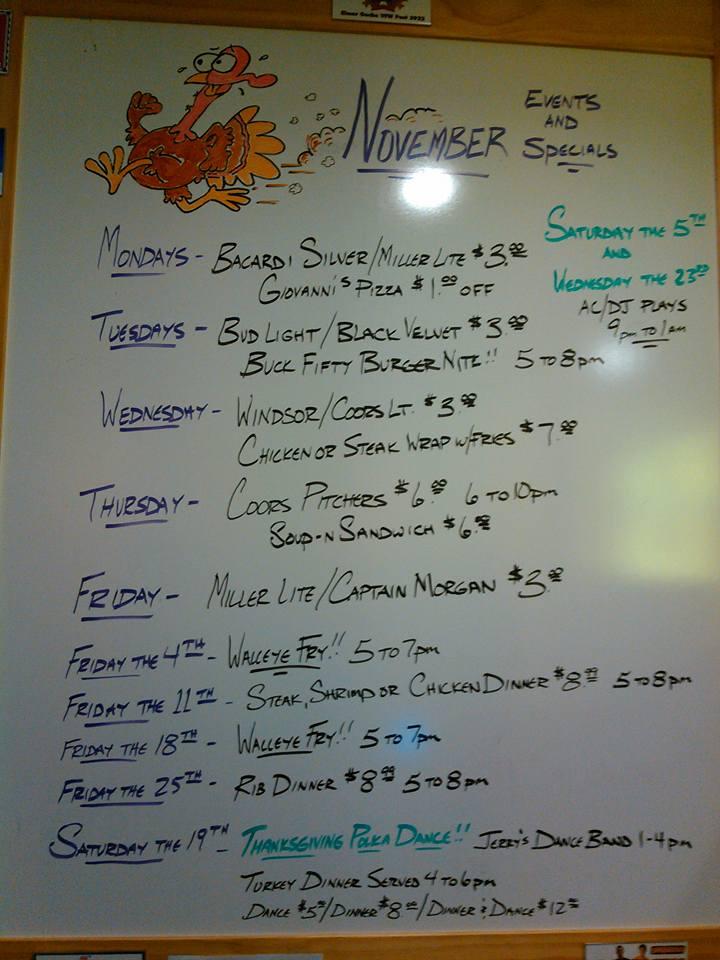 November
Events
and
Specials
Saturday the 5th
and
Wednesday the 23rd
AC/DJ Plays
9pm to 1am
Mondays - Bacardi Silver/Miller Lite $3.00
Giovanni's Pizza $1.00 off
Tuesdays - Bud Light/Black Velvet $3.00
Buck Fifty Burger Nite!! 5 to 8pm
Wednesday - Windsor/Coors Lt. $3.00
Chicken or Steak Wrap w/Fries $7.00
Thursday - Coors Pitchers $6.00 6 to 10pm
Soup-n Sandwich $6.50
Friday - Miller Lite/Captain Morgan $3.00
Friday the 4th - Walleye Fry!! 5 to 7pm
Friday the 11th - Steak, Shrimp or Chicken Dinner $8.00 5 to 8pm
Friday the 18th - Walleye Fry!! 5 to 7pm
Friday the 25th - Rib Dinner $8.00 5 to 8pm
Saturday the 19th - Thanksgiving Polka Dance!! Jerry's Dance Band 1-4pm
Turkey Dinner Served 4 to 6pm
Dance $5.00/Dinner $8.00/Dinner & Dance $12.00